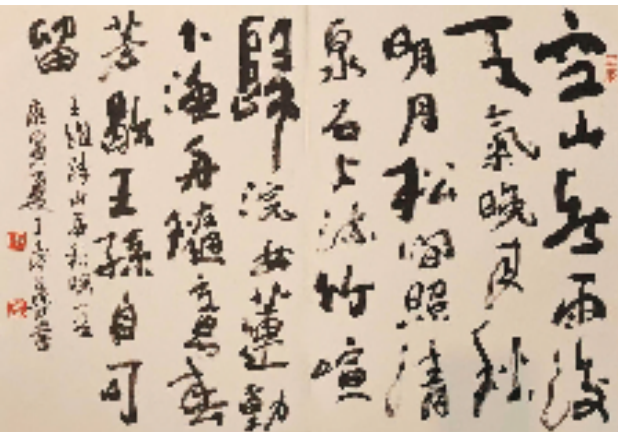 空山新雨後
天氣晚来秋
明月松間照清
泉石上流竹喧
歸浣女蓮動
下漁舟隨意春
芳歇王孫自可
留
王維詩山居秋暝